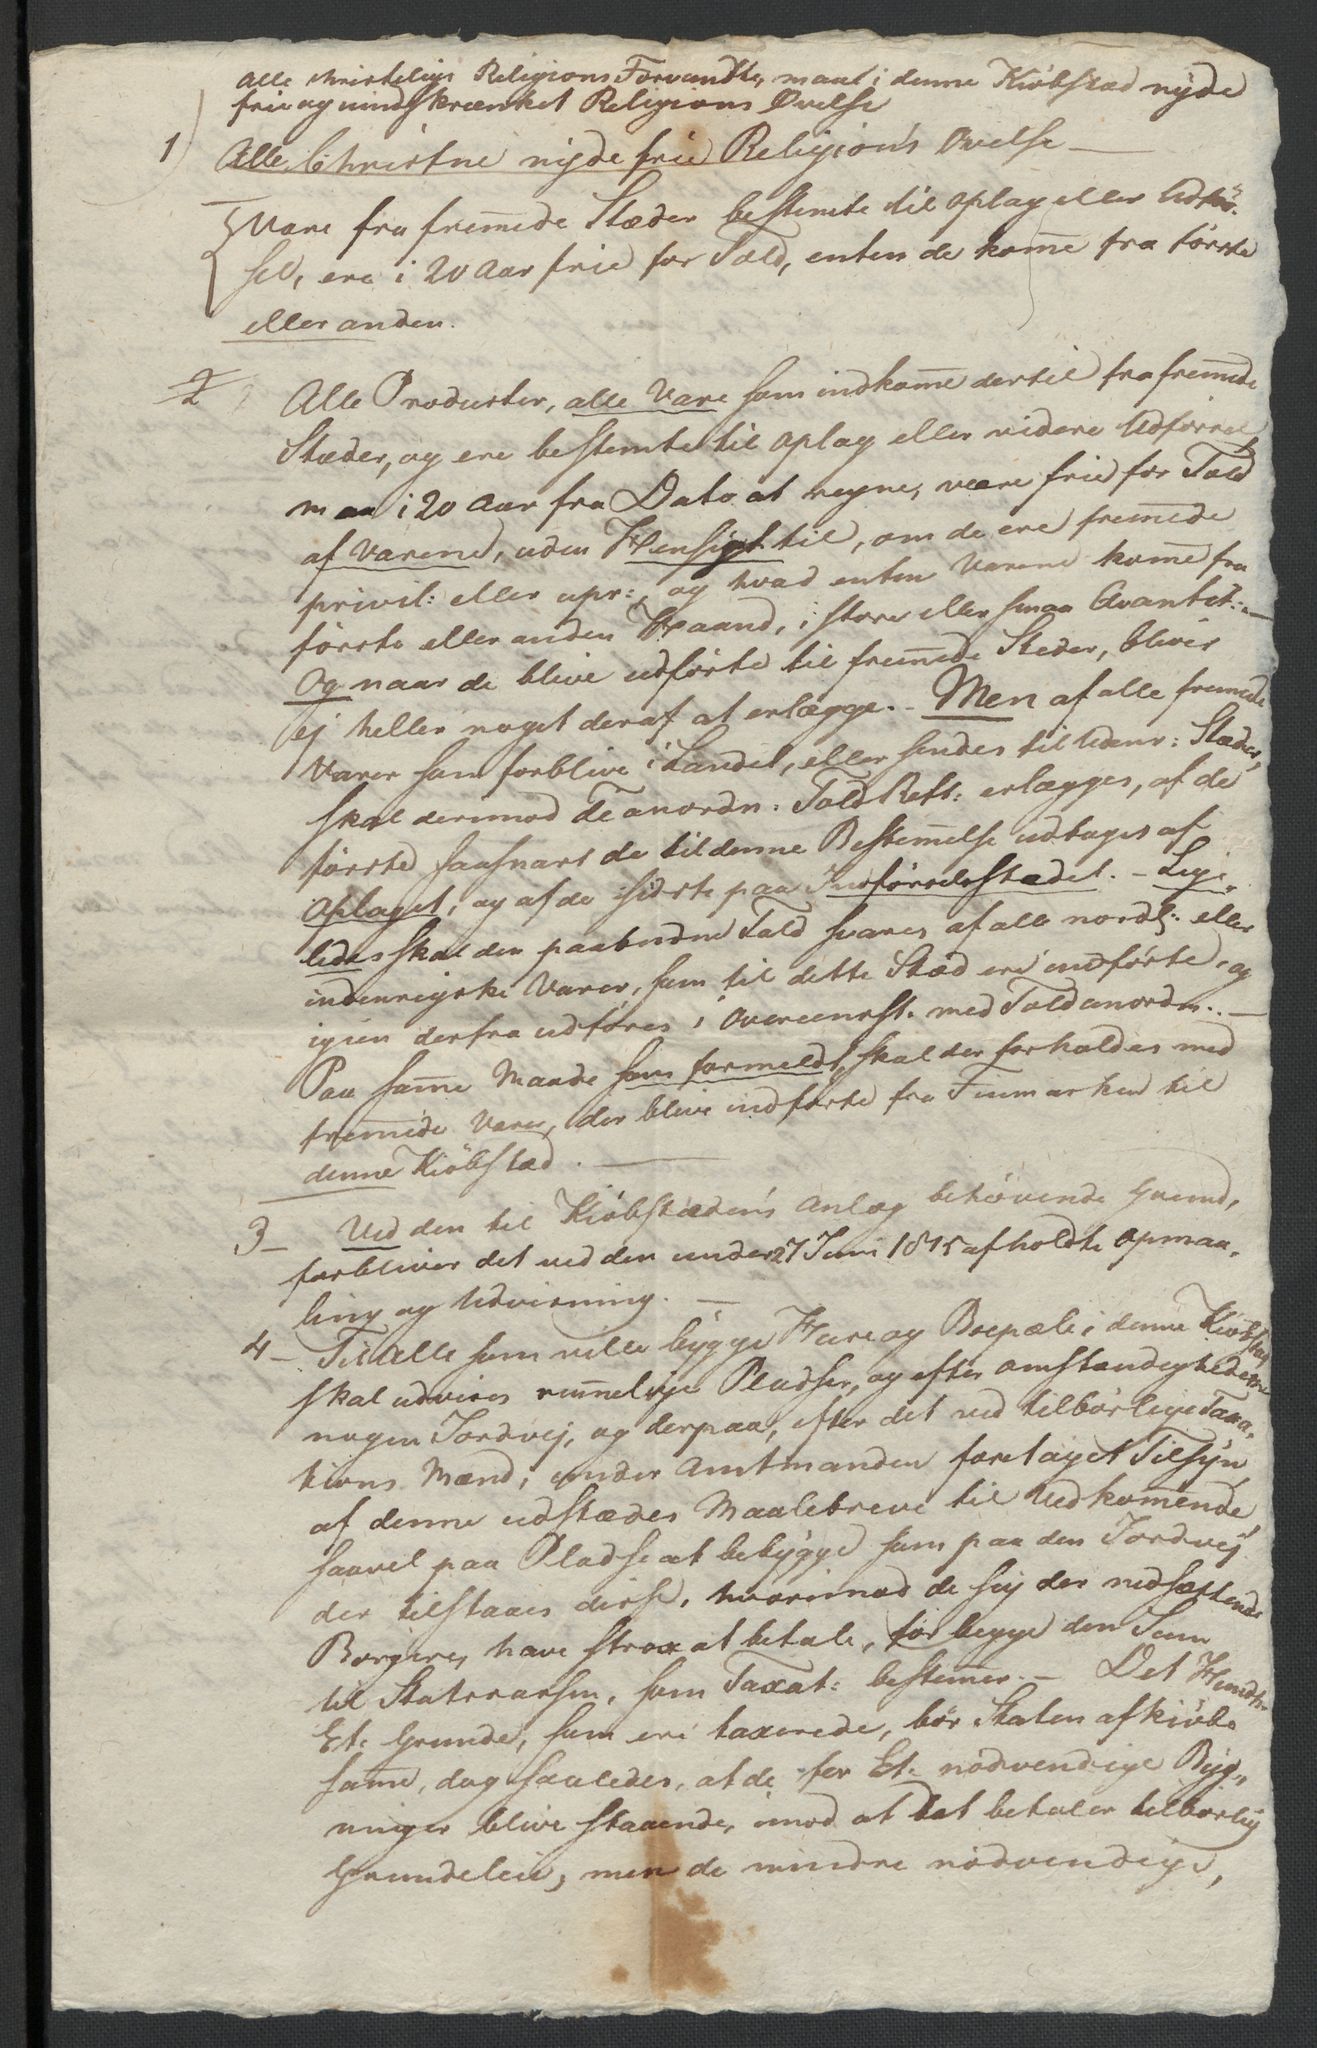 alle christelige Religions Forvandte, maae i denne Kiöbstæd nyde
frie og uindskrænket Religions Øvelse
1) Alle Christne nyde frie Religions Øvelse —
Vare fra fremede Stæder bestemte til Oplag eller Udför-
sel, ere i 20 Aar frie for Told, enten de kome fra förste
eller anden.
2 Alle Producter, alle Vare som indkome dertil fra fremede
Stæder, og ere bestemte til Oplag eller videre Udförsel
maa i 20 Aar fra Dato at regne, være frie for Told
af Varene, uden Hensigt til, om de ere fremede
privil: eller upr:, og hvad enten Varene kome fra
förste eller anden Haand, i store eller smaa Qvantit: —
Og naar de blive udförte til fremede Steder, bliver
ej heller noget deraf at erlægge. - Men af alle fremede
Varer som forblive i Landet, eller sendes til Udenr: Stæder,
skal derimod de anordn: Told Rett: erlægges, af de
förste saasnart de til denne Bestemelse udtages af
Oplaget, og af de sidste paa Indförselsstædet. - Lige-
ledes skal den paabudne Told svares af alle nordl: eller
indenrigske Varer, som til dette Stæd ere indförte, og
igien derfra udföres i Overeenst. med Toldanordn. . —
Paa same Maade som formeldt, skal der forholdes med
fremede Varer, der blive indförte fra Finmarken til
denne Kiöbstæd. —
3 — Ved den til Kiöbstædens Anlæg behövende Grund,
forbliver det ved den under 27 Juni 1815 afholdte Opmaa-
ling og Udviisning. —
4 — Til alle som ville bygge Huse og Boepæle i denne Kiöbstæd
skal udvises rumelige Pladser, og efter Omstændighederne
nogen Jordvej, og derpaa, efter det ved tilbörlige Taxa-
tions Mænd, under Amtmanden foretaget Tilsyn,
af denne udstædes Maalebreve til Vedkomende,
saavel paa Pladse at bebygge som paa den Jordvej
der tilstaaes disse, hvorimod de sig der nedsættende
Borgere, have strax at betale, for begge den Sum
til Statscassen, som Taxat: bestemer. — Det
Et: Grunde, som ere taxerede, bör Staten afkiöbe
same, dog saaledes, at de for Et: nödvendige Byg-
ninger blive staaende, imod at det betaler tilbörlig
Grundeleie, men de mindre nödvendige,